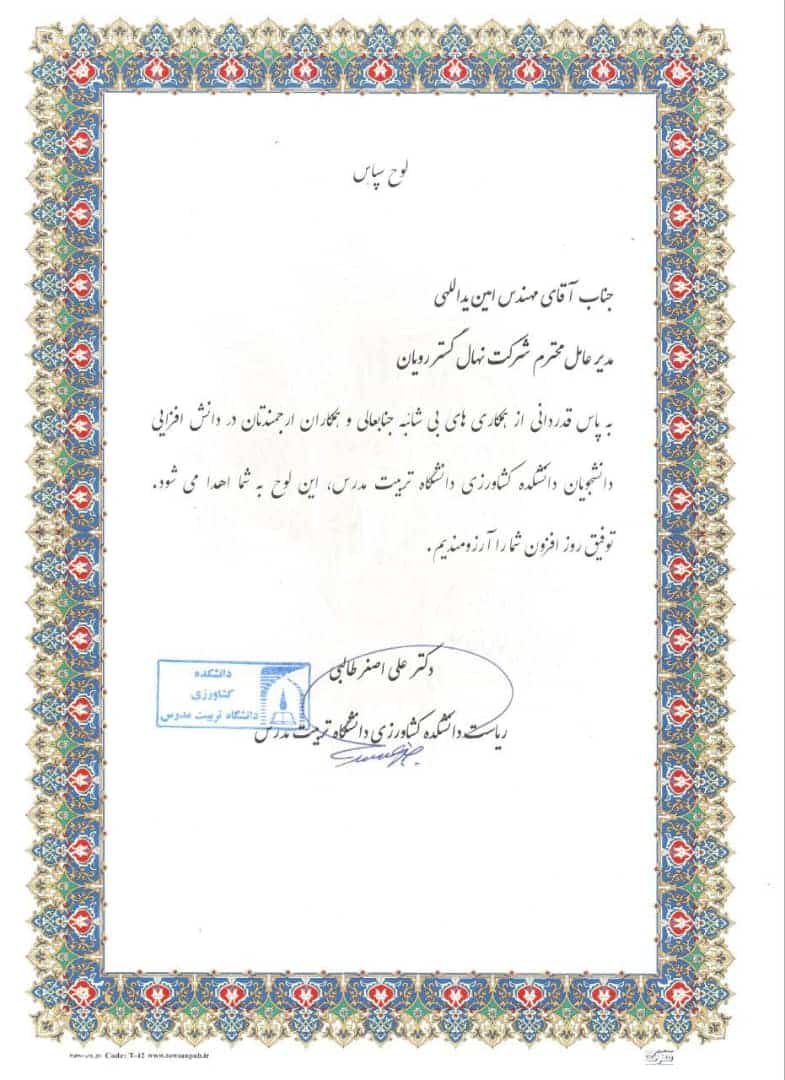 لوح سپاس
جناب آقای مهندس امین یداللهی
مدیر عامل محترم شرکت نهال گستر رویان
به پاس قدردانی از همکاری های بی شائبه جنابعالی و همکاران ارجمندتان در دانش افزایی
دانشجویان دانشکده کشاورزی دانشگاه تربیت مدرس، این لوح به شما اهدا می شود.
توفیق روز افزون شما را آرزومندیم.
دکتر علی اصغر طالبی
ریاست دانشکده کشاورزی دانشگاه تربیت مدرس
دانشکده
کشاورزی
دانشگاه تربیت مدرس
Code: T-42 www.towsanpub.ir